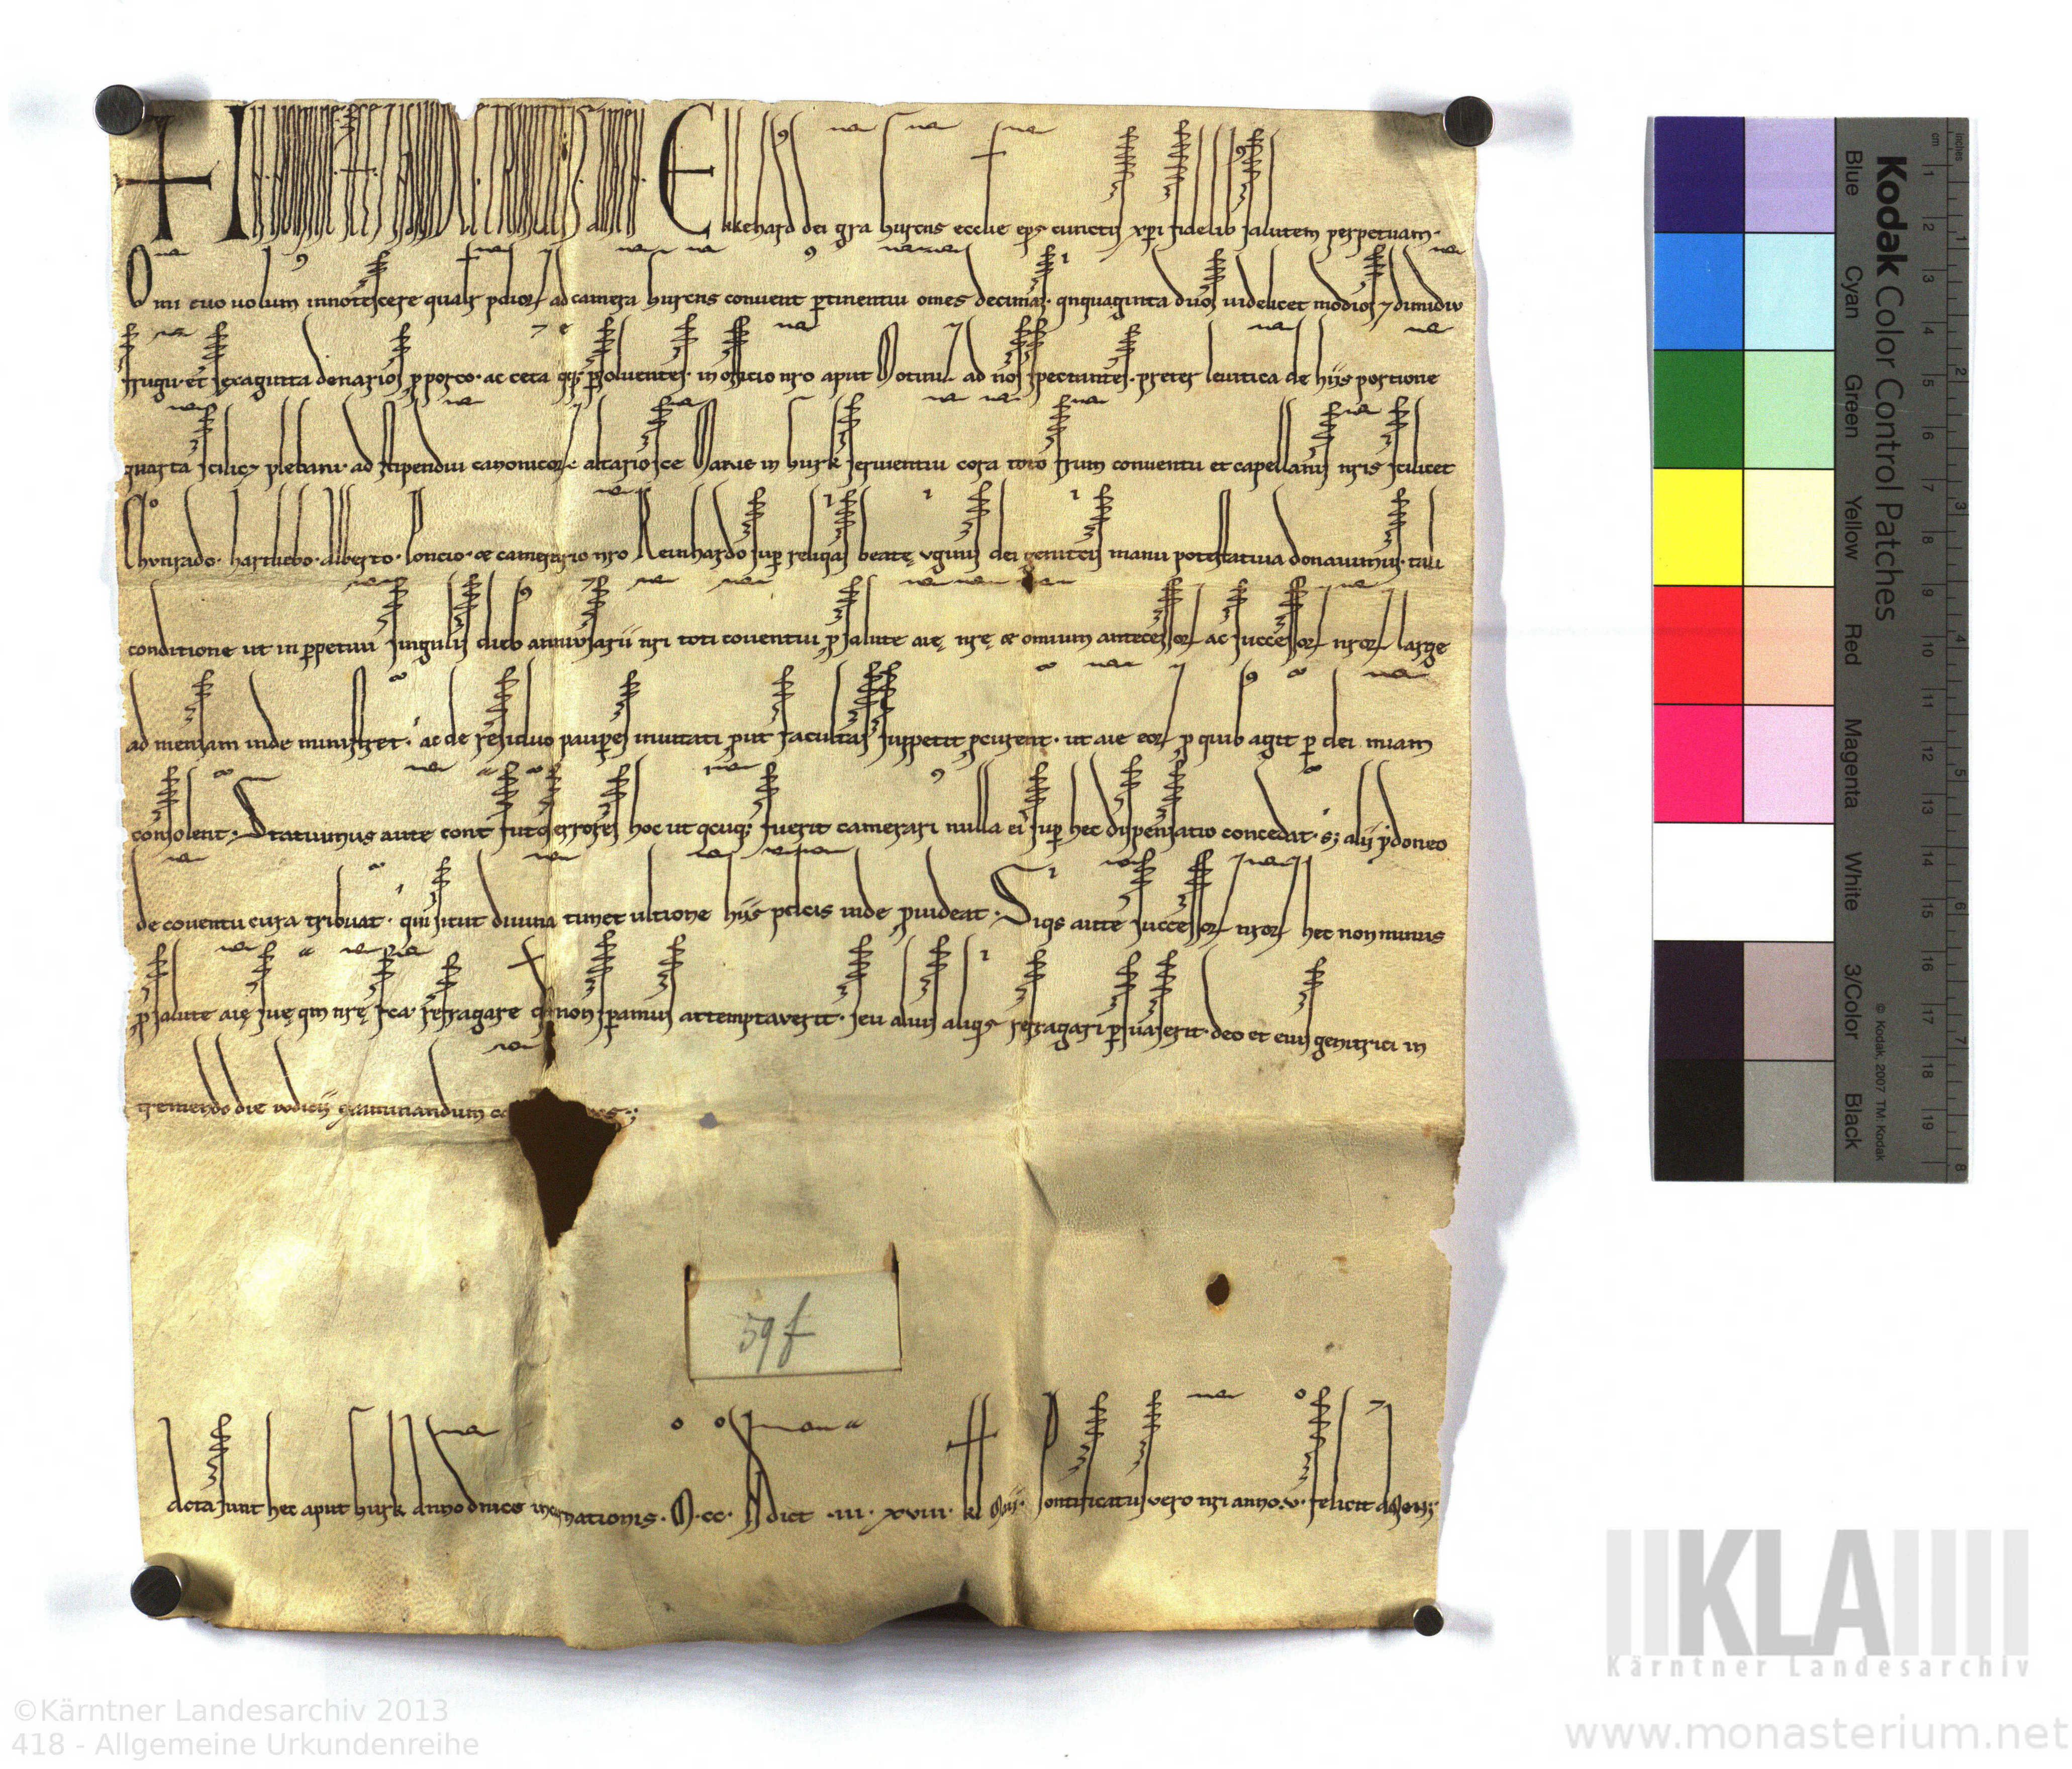 + IN NOMINE SCE ET INDIVIDUE TRINITATIS AMEN. Ekkehard dei gra Gurcns ecclie eps cunctis xpi fidelib salutem perpetuam.
Omi euo uolum innotescere qualr ad camera Gurcns convent ptinentiu omes decimas. qnquaginta duos uidelicet modios 7 dimidiu
frugu. et sexaginta denarios p porco. ac ceta psoluentes. in officio nro aput ad nos spectantes. preter leuitica de hiis portione
quarta scilic plebani. ad stipendiu canonicor altario sce Marie in Gurk seruientiu cora toto frum conuentu et capellanis nris scilicet
Chvnrado. hartliebo. Alberto. Poncio. ac camerario nro Reinhardo sup reliqas beate vginis dei genitcis manu potestatiua donauimus. tali
conditione ut in ppetuu singulis dieb anniusarii nri toti couentui p salute aie nre ac omium antecessor ac successor nror large
ad mensam inde ministret. ac de residuo paupes inuitati put facultas suppetit pcurent. ut aie eor p quib agit p dei miam
consolent. Statuimus aute cont futos errores hoc ut qcuq; fuerit camerari nulla ei sup hec dispensatio concedat. s; alii ydoneo
de couentu cura tribuat. qui sicut diuina timet ultione hiis inde puideat. Siqs aute successor nror hec non minus
p salute aie sue qm nre fca refragare qd non spamus attemptaverit. seu alius aliqs refragari psuaserit. deo et eius genitrici in
tremendo die iudicii examinandum
59 f
Acta sunt hec aput Gurk anno dnice incarnationis. M.cc. Indict .iii. xviii. kl Pontificatus vero nri anno.v. felicit Amen;
Kodak Color Control Patches
Blue Cyan Green Yellow Red Magenta White 3/Color Black
© Kodak, 2007 TM: Kodak
inches
cm
1 2 3 4 5 6 7 8 9 10 11 12 13 14 15 16 17 18 19
1 2 3 4 5 6 7 8
KLA
Kärntner Landesarchiv
©Kärntner Landesarchiv 2013
418 - Allgemeine Urkundenreihe
www.monasterium.net